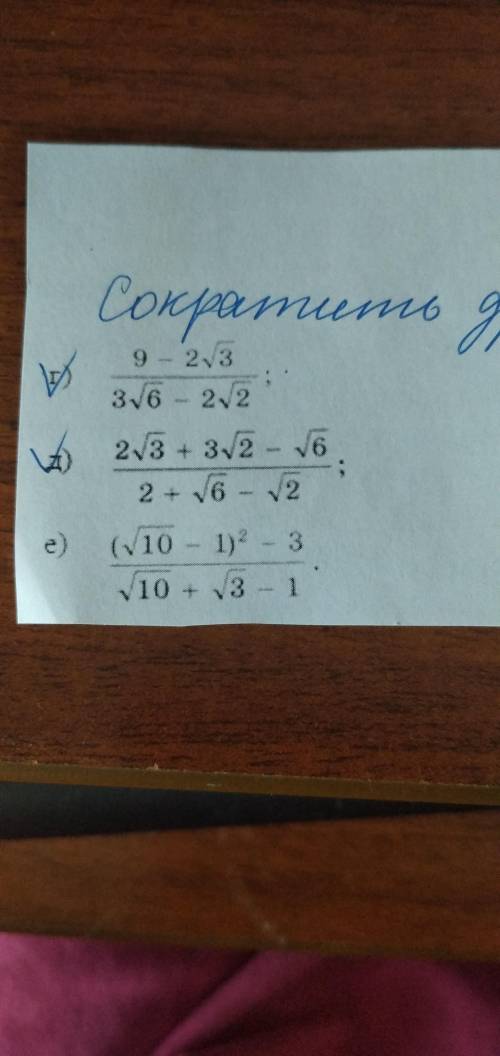 Сократить
г) \frac{9 - 2\sqrt{3}}{3\sqrt{6} - 2\sqrt{2}};
д) \frac{2\sqrt{3} + 3\sqrt{2} - \sqrt{6}}{2 + \sqrt{6} - \sqrt{2}};
е) \frac{(\sqrt{10} - 1)^2 - 3}{\sqrt{10} + \sqrt{3} - 1}.